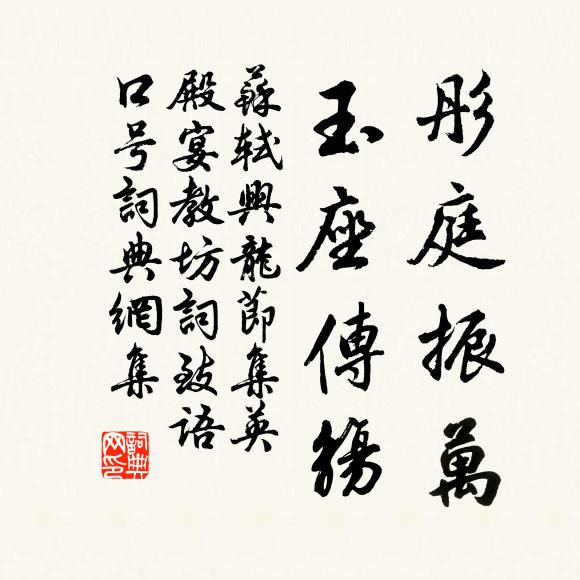 彤庭振萬
玉座傳觴
蘇軾興龍節集英
殿宴教坊詞致語
口号詞典網集
詞典网印